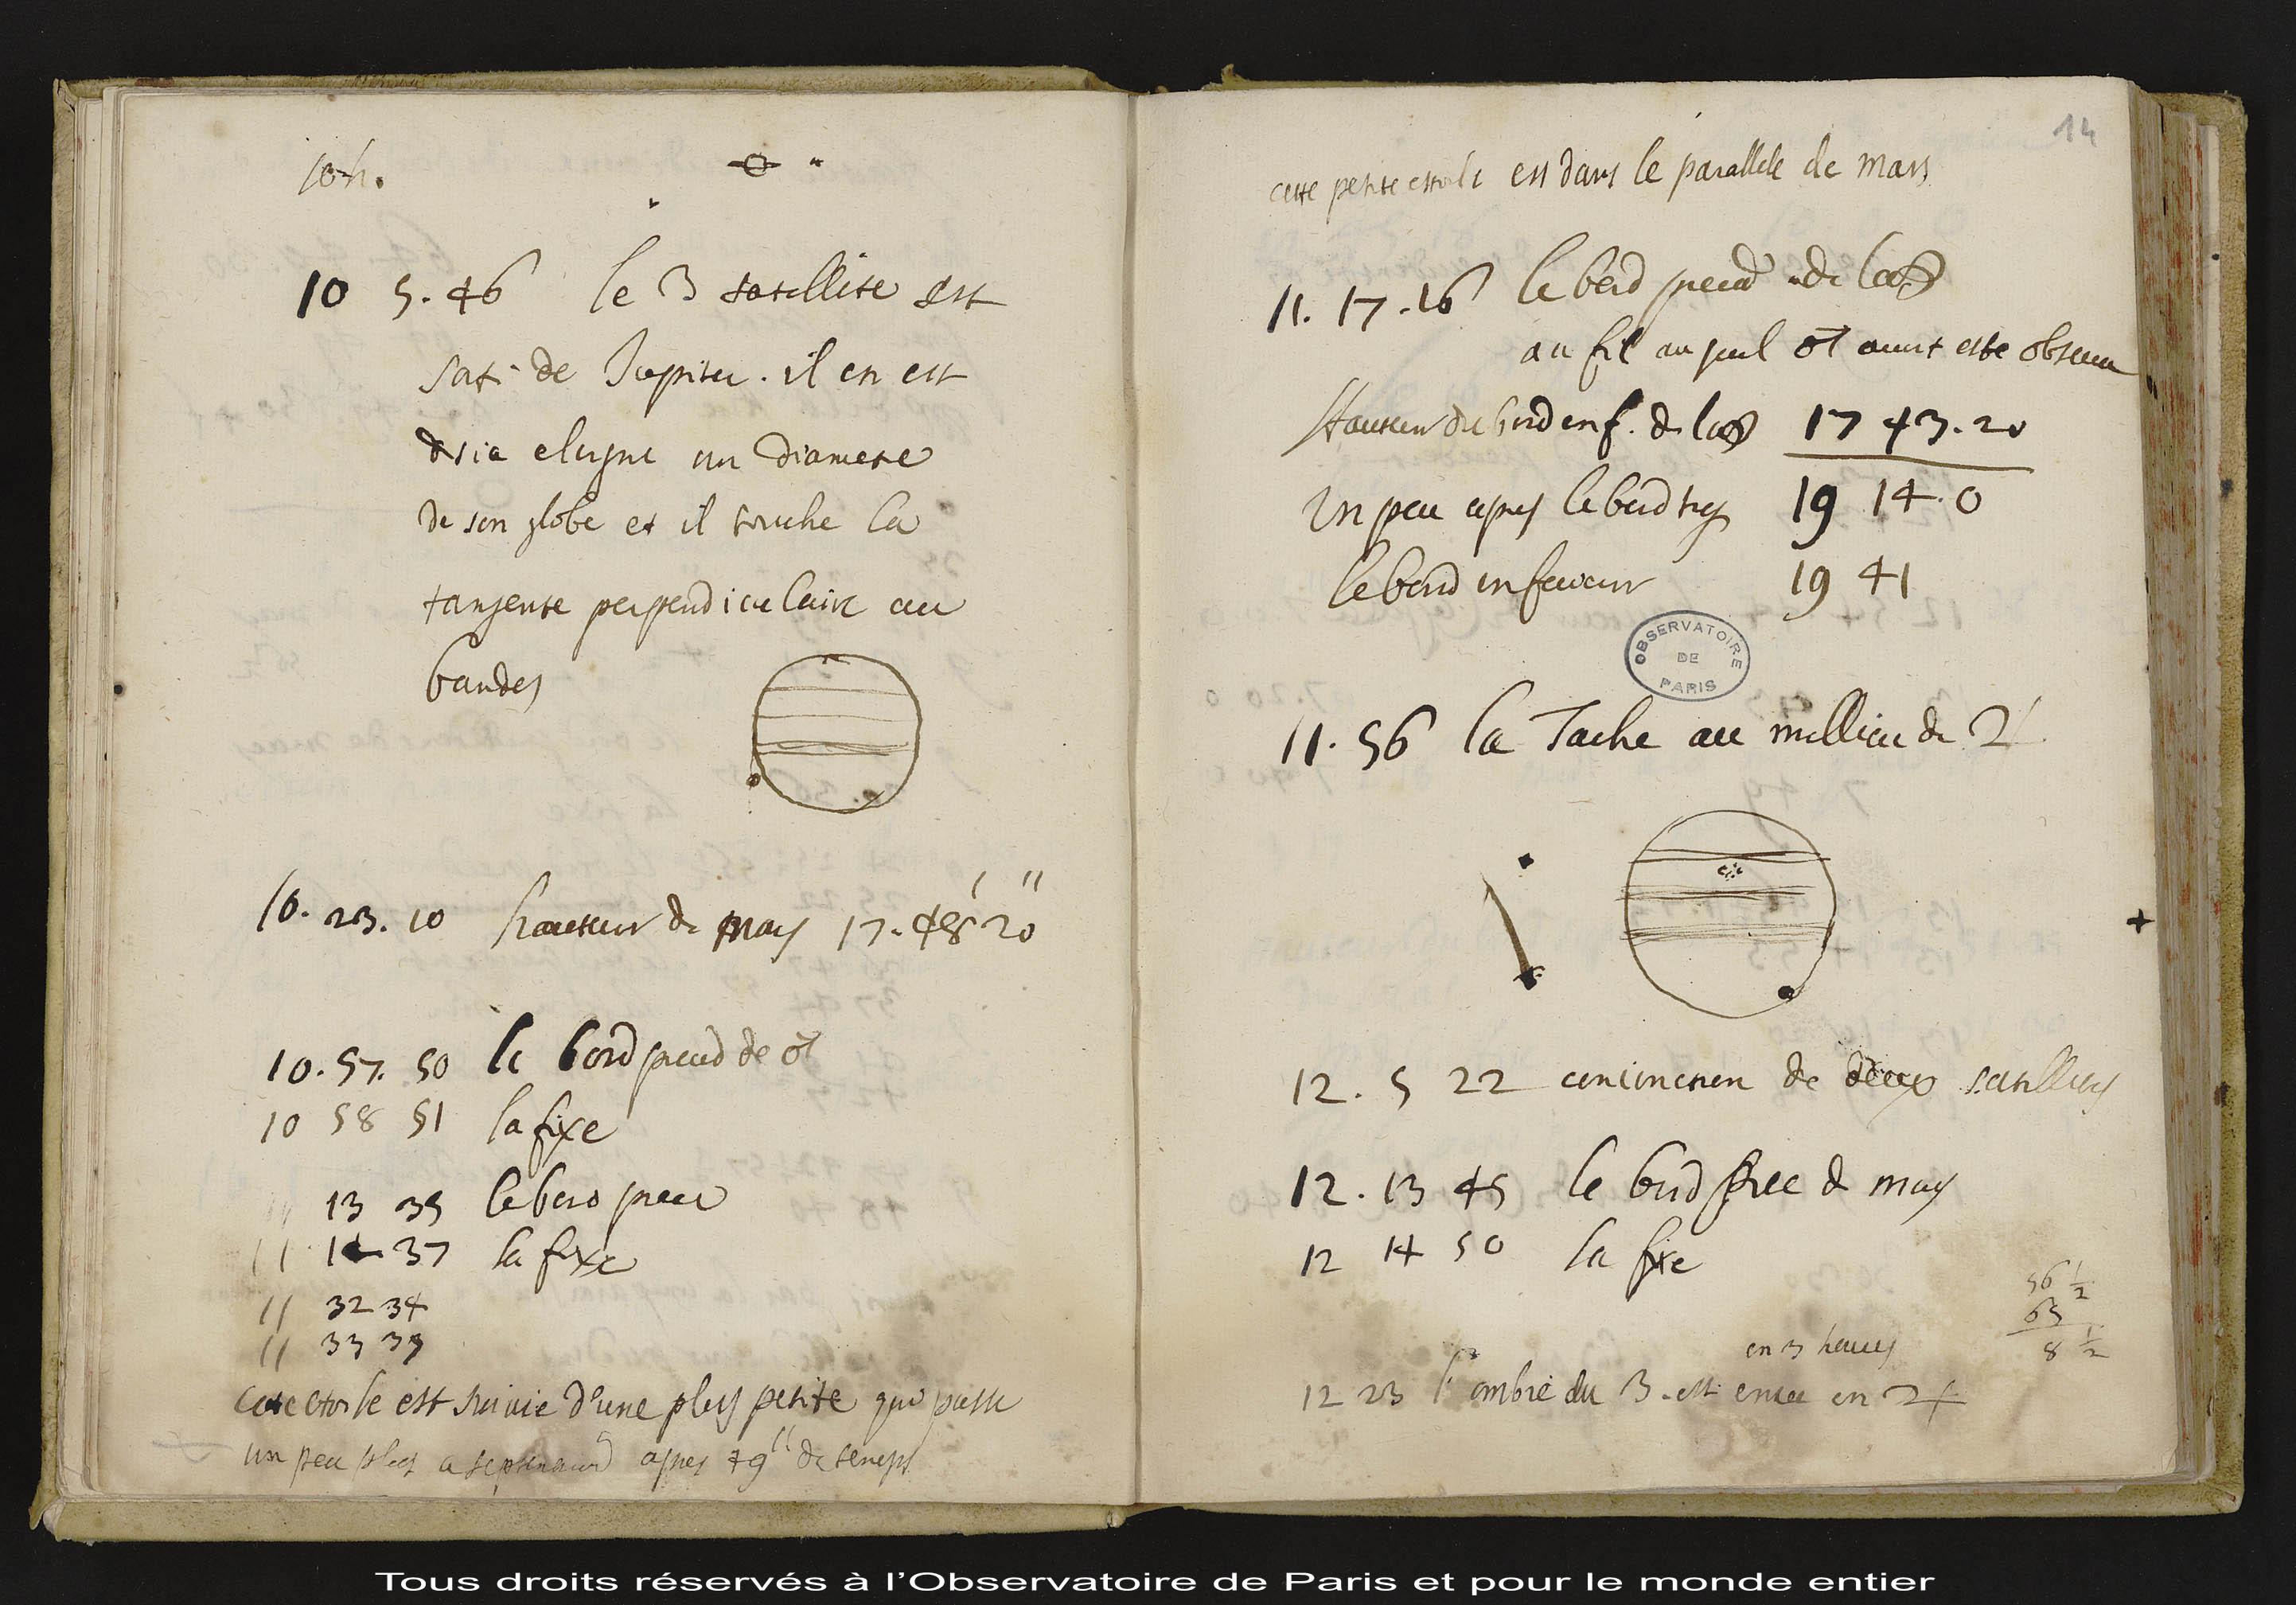 10h.
10 5.46 le 3 satellite est
sati de Jupiter . il en est
elogne un diametre
de son globe et il touche la
tangente perpendiculaire au
bandes
10. 23. 10 hauteur de mars 17. 48' 20''
10. 57. 50 le bord preced de ♂
10 58 51 la fixe
11 13 35 le bord prece
11 14 37 la fixe
11 32 34
11 33 39
cete etoile est suivie d'une plus petite qui passe
un peu plus a septentrion apres 49'' de temps
14
cette petite estoile est dans le parallele de mars
11. 17. 16 le bord preced de la
au fil au quel ♂ avoit este observ
Hauteur du bord inf. de la 17 43. 20
Un peu apres le bord 19 14. 0
le bord inferieur 19 41
OBSERVATOIRE
DE
PARIS
11. 56 la Tache au millieu de ♃
12. 5 22 conionction de deux satellites
12. 13 45 le bord prec de mars
12 14 50 la fixe
56 1/2
65
8 1/2
en 3 heures
12 23 l'ombre du 3. est entre en ♃
Tous droits réservés à l'Observatoire de Paris et pour le monde entier